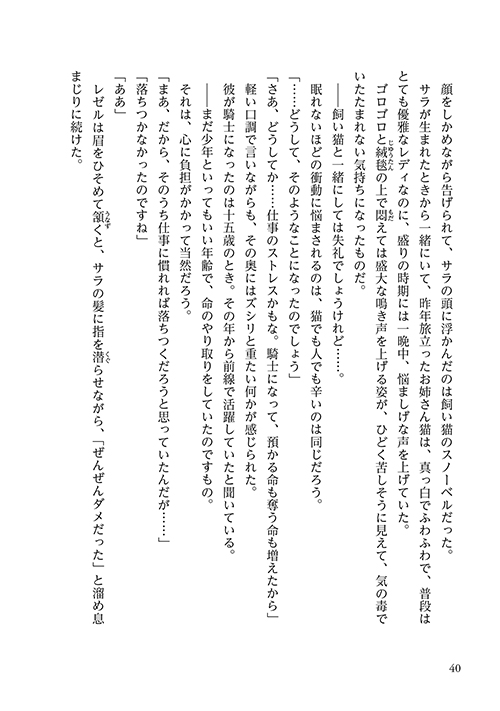 顔をしかめながら告げられて、サラの頭に浮かんだのは飼い猫のスノーベルだった。
サラが生まれたときから一緒にいて、昨年旅立ったお姉さん猫は、真っ白でふわふわで、普段は
とても優雅なレディなのに、盛りの時期には一晩中、悩ましげな声を上げていた。
ゴロゴロと絨毯の上で悶えては盛大な鳴き声を上げる姿が、ひどく苦しそうに見えて、気の毒で
じゅうたん
もだ
いたたまれない気持ちになったものだ。
――飼い猫と一緒にしては失礼でしょうけれど……。
眠れないほどの衝動に悩まされるのは、猫でも人でも辛いのは同じだろう。
「……どうして、そのようなことになったのでしょう」
「さあ、どうしてか……仕事のストレスかもな。騎士になって、預かる命も奪う命も増えたから」
軽い口調で言いながらも、その奥にはズシリと重たい何かが感じられた。
彼が騎士になったのは十五歳のとき。その年から前線で活躍していたと聞いている。
――まだ少年といってもいい年齢で、命のやり取りをしていたのですもの。
それは、心に負担がかかって当然だろう。
「まあ、だから、そのうち仕事に慣れれば落ちつくだろうと思っていたんだが……」
「落ちつかなかったのですね」
「ああ」
レゼルは眉をひそめて頷くと、サラの髪に指を潜らせながら、「ぜんぜんダメだった」と溜め息
うなず
くぐ
まじりに続けた。
40